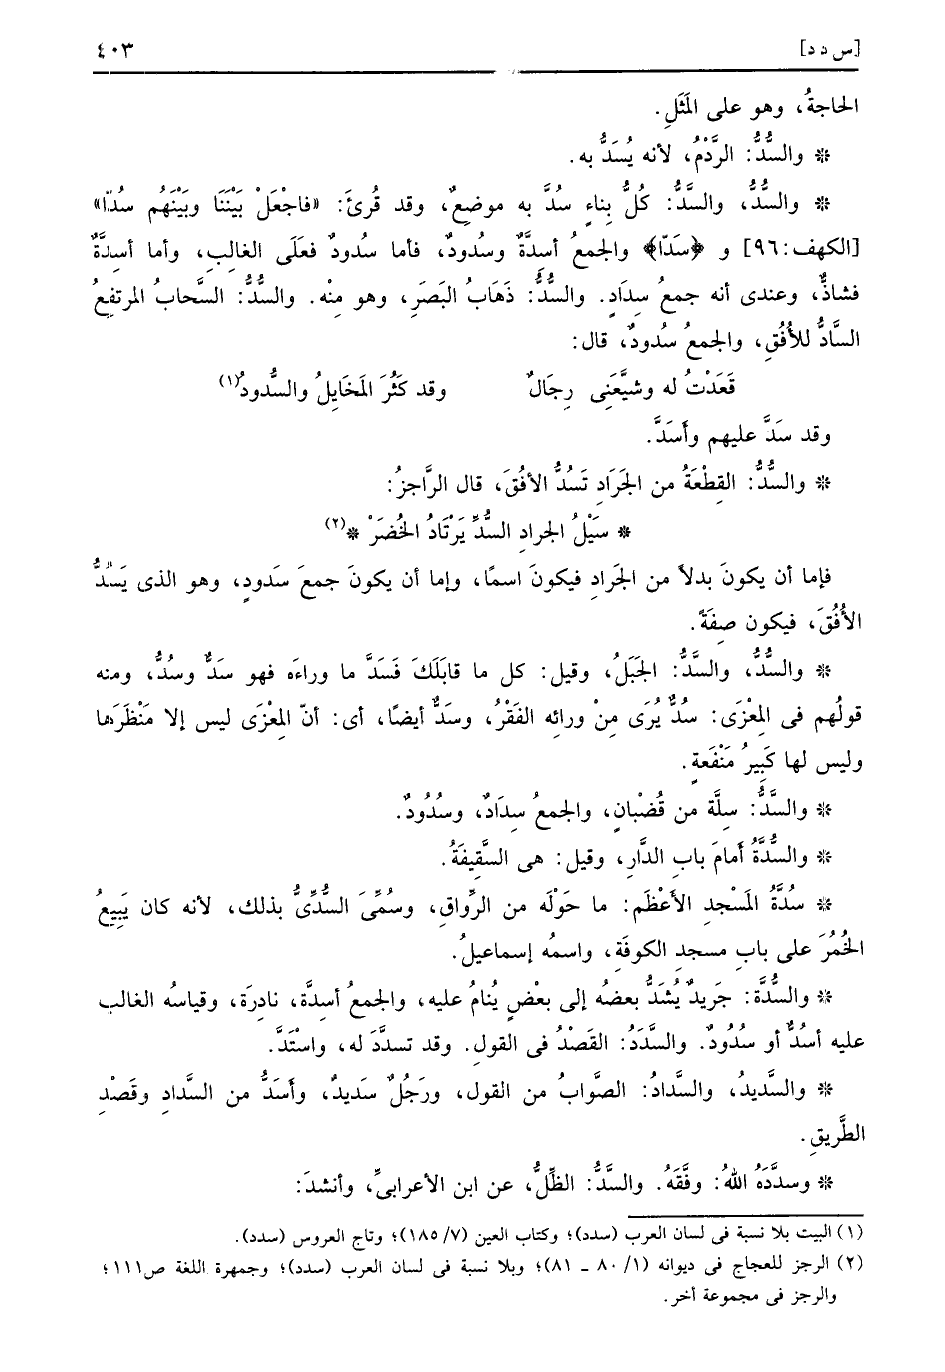 [س د د] ٤٠٣
الحاجةُ، وهو على المَثَلِ.
* والسُّدُّ: الرَّدْمُ، لأنه يُسَدُّ به.
* والسُّدُّ، والسَّدُّ: كُلُّ بِناءٍ سُدَّ به موضِعٌ، وقد قُرئَ: «فاجْعَلْ بَيْنَنَا وبَيْنَهُم سُدّا»
[الكهف:٩٦] و ﴿سَدّا﴾ والجمعُ أسِدَّةٌ وسُدودٌ، فأما سُدودٌ فعلَى الغالِبِ، وأما أسِدَّةٌ
فشاذٌّ، وعندى أنه جمعُ سِدَادٍ. والسُّدُّ: ذَهَابُ البَصَرِ، وهو مِنْه. والسُّدُّ: السَّحابُ المرتفِعُ
السَّادُّ للأُفُقِ، والجمعُ سُدودٌ، قال:
قَعَدْتُ له وشَيَّعَنِى رِجَالٌ وقد كَثُرَ المَخَايِلُ والسُّدودُ(١)
وقد سَدَّ عليهم وأَسَدَّ.
* والسُّدُّ: القِطْعَةُ من الجَرَادِ تَسُدُّ الأفُقَ، قال الرَّاجزُ:
* سَيْلُ الجرادِ السُّدِّ يَرْتَادُ الخُضَرْ *(٢)
فإما أن يكونَ بدلاً من الجَرادِ فيكونَ اسمًا، وإما أن يكونَ جمعَ سَدودٍ، وهو الذى يَسُدُّ
الأُفُقَ، فيكون صِفَةً.
* والسُّدُّ، والسَّدُّ: الجَبَلُ، وقيل: كل ما قابَلَكَ فَسَدَّ ما وراءَه فهو سَدٌّ وسُدٌّ، ومنه
قولُهم فى المِعْزَى: سُدٌّ يُرَى مِنْ ورائِه الفَقْرُ، وسَدٌّ أيضًا، أى: أنّ المِعْزَى ليس إلا مَنْظَرَها
وليس لها كَبِيرُ مَنْفَعةٍ.
* والسَّدُّ: سلَّة من قُضْبانٍ، والجمعُ سِدَادٌ، وسُدُودٌ.
* والسُّدَّةُ أمامَ بابِ الدَّارِ، وقيل: هى السَّقِيفَةُ.
* سُدَّةُ المَسْجدِ الأَعْظَمِ: ما حَوْلَه من الرِّواقِ، وسُمِّىَ السُّدِّىُّ بذلك، لأنه كان يَبِيعُ
الخُمُرَ على بابِ مسجدِ الكوفَةِ، واسمُه إسماعيلُ.
* والسُّدَّة: جَرِيدٌ يُشَدُّ بعضُه إلى بعْضٍ يُنامُ عليه، والجمعُ أسِدَّة، نادرَة، وقياسُه الغالب
عليه أسُدٌّ أو سُدُودٌ. والسَّدَدُ: القَصْدُ فى القولِ. وقد تسدَّدَ له، واسْتَدَّ.
* والسَّديدُ، والسَّدادُ: الصَّوابُ من القول، ورَجُلٌ سَديدٌ، وأسَدُّ من السَّدادِ وقَصْدِ
الطَّريقِ.
* وسدَّدَهُ اللهُ: وفَّقَهُ. والسَّدُّ: الظِّلُّ، عن ابن الأعرابىِّ، وأنشدَ:
(١) البيت بلا نسبة فى لسان العرب (سدد)؛ وكتاب العين (٧/ ١٨٥)؛ وتاج العروس (سدد).
(٢) الرجز للعجاج فى ديوانه (١/ ٨٠ ـ ٨١)؛ وبلا نسبة فى لسان العرب (سدد)؛ وجمهرة اللغة ص١١١؛
والرجز فى مجموعة أخر.